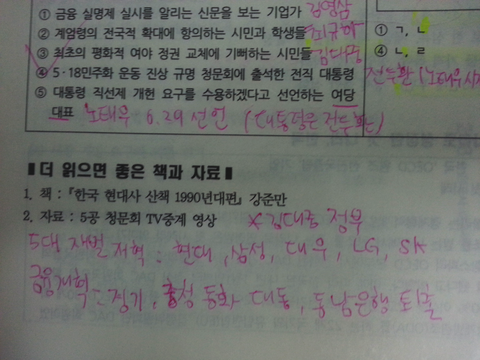 ① 금융 실명제 실시를 알리는 신문을 보는 기업가 김영삼
② 계엄령의 전국적 확대에 항의하는 시민과 학생들 최규하
③ 최초의 평화적 여야 정권 교체에 기뻐하는 시민들 김대중
④ 5·18민주화 운동 진상 규명 청문회에 출석한 전직 대통령 전두환 (노태우 시
⑤ 대통령 직선제 개헌 요구를 수용하겠다고 선언하는 여당
대표 노태우 6.29 선언 (대통령은 전두환)
① ㄱ, ㄴ
④ ㄴ, ㄹ
■ 더 읽으면 좋은 책과 자료 ■
1. 책 : 『한국 현대사 산책 1990년대편』 강준만
2. 자료 : 5공 청문회 TV중계 영상
*김대중 정부
5대 재벌 개혁 : 현대, 삼성, 대우, LG, SK
금융개혁 : 경기, 충청 동화 대동, 동남은행 퇴출